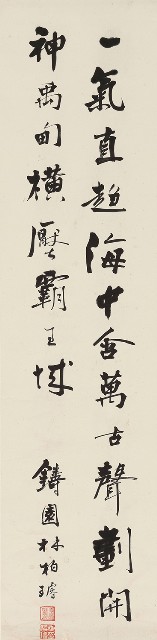 一氣直趨海中含萬古聲劃開
神禹甸橫壓霸王城
鑄園林柏璿